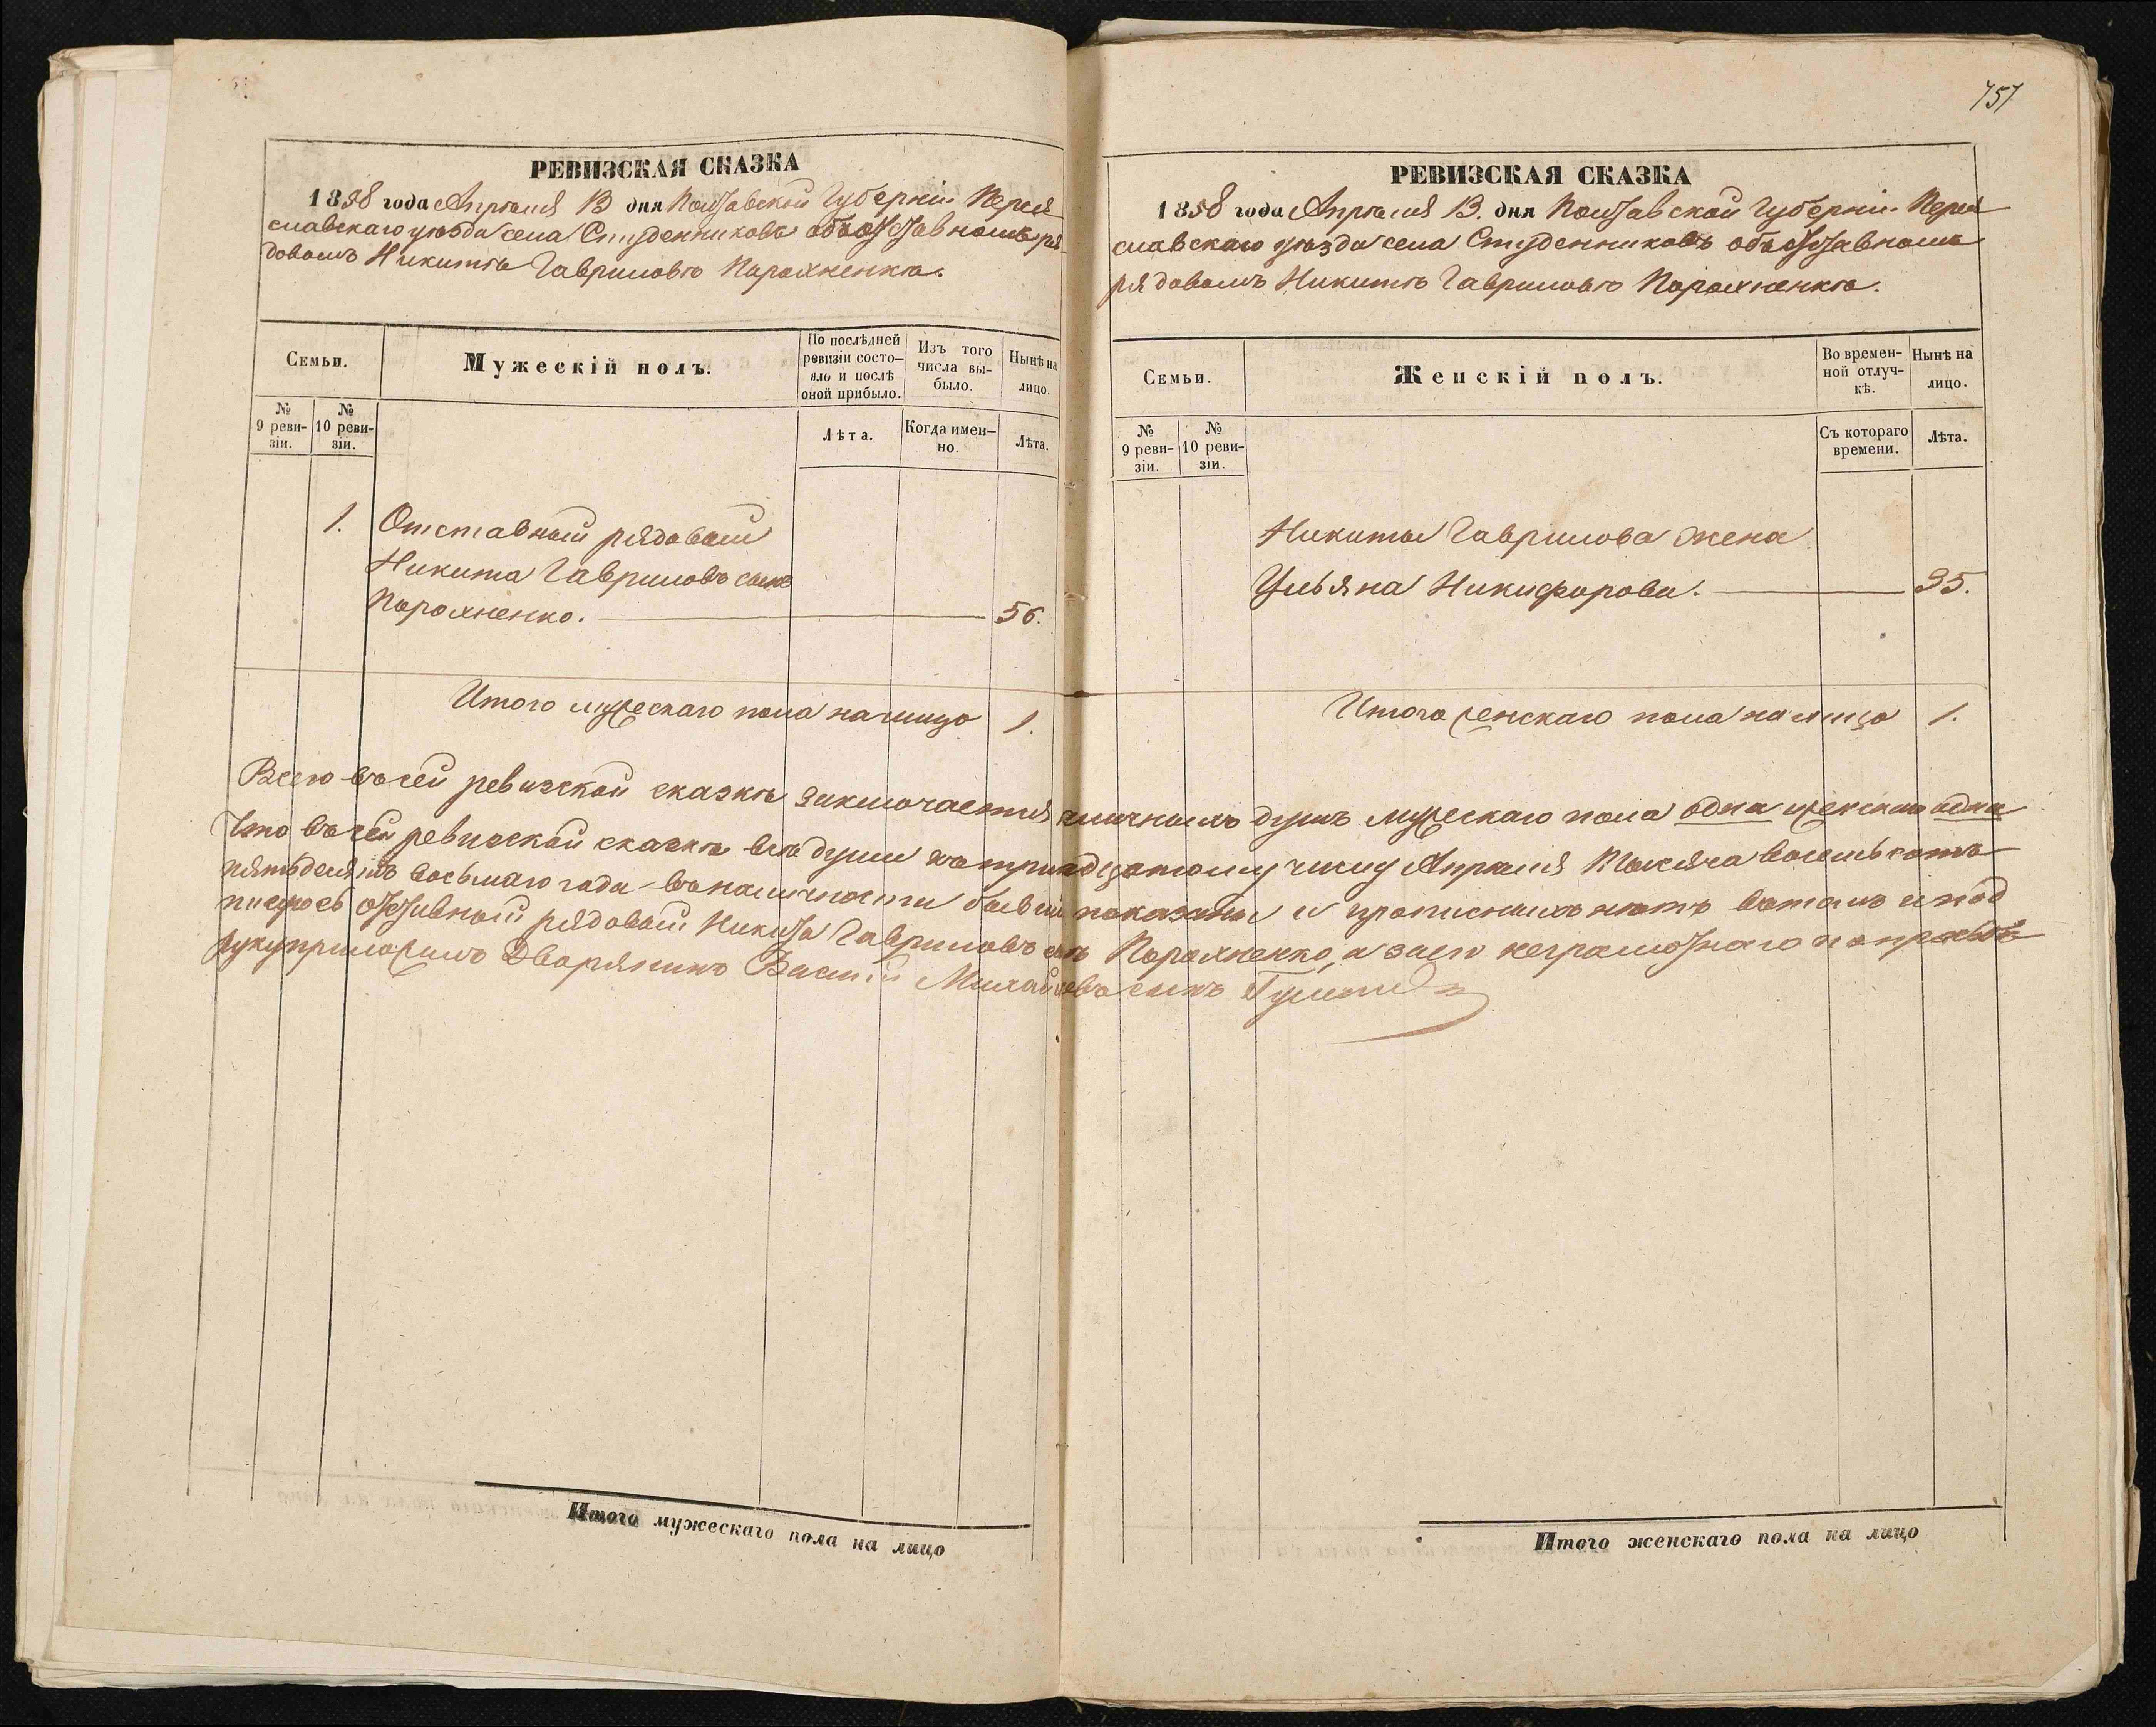 757
РЕВИЗСКАЯ СКАЗКА
1858 года Апрѣля 13 дня Полтавской Губерніи Перея
славскаго уѣзда села Студенниковъ объ отставномъ ря
довомъ Никитѣ Гавриловѣ Порохненкѣ.
Семьи.
Мужескій полъ.
По послѣдней
ревизіи состо–
яло и послѣ
оной прибыло.
Изъ того
числа вы–
было.
Нынѣ на
лицо.
№
9 реви–
зіи.
№
10 реви–
зіи.
Лѣта.
Когда имен–
но.
Лѣта.
1. Отставный рядовый
Никита Гавриловъ сынъ
Порохненко. 56.
Итого мужескаго пола на лицо 1.
РЕВИЗСКАЯ СКАЗКА
1858 года Апрѣля 13. дня Полтавской Губерніи Перея
славскаго уѣзда села Студенниковъ объ отставномъ
рядовомъ Никитѣ Гавриловѣ Порохненкѣ.
Семьи.
Женскій полъ.
Во времен–
ной отлуч–
кѣ.
Нынѣ на
лицо.
№
9 реви–
зіи.
№
10 реви–
зіи.
Съ котораго
времени.
Лѣта.
Никиты Гаврилова жена
Ульяна Никифорова. 35.
Итого женскаго пола на лицо 1.
Всего въ сей ревизской сказкѣ заключается наличныхъ душъ мужескаго пола одна женскаго одна
Что въ сей ревизской сказкѣ всѣ души къ тринадцатому числу Апрѣля Тысяча восемьсотъ
пятьдесятъ восьмаго года въ наличности бывшіе показаны и прописныхъ нѣтъ въ томъ и под
писуюсь отставный рядовый Никита Гавриловъ сынъ Порохненко, а за его неграмотнаго по прозьбѣ
руку приложилъ Дворянинъ Василій Михайловъ сынъ
Итого мужескаго пола на лицо
Итого женскаго пола на лицо